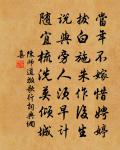 當年不嫁惜娉婷
拔白施朱作後生
說與旁人須早計
隨宜梳洗莫傾城
陳師道放歌行詞典網
集